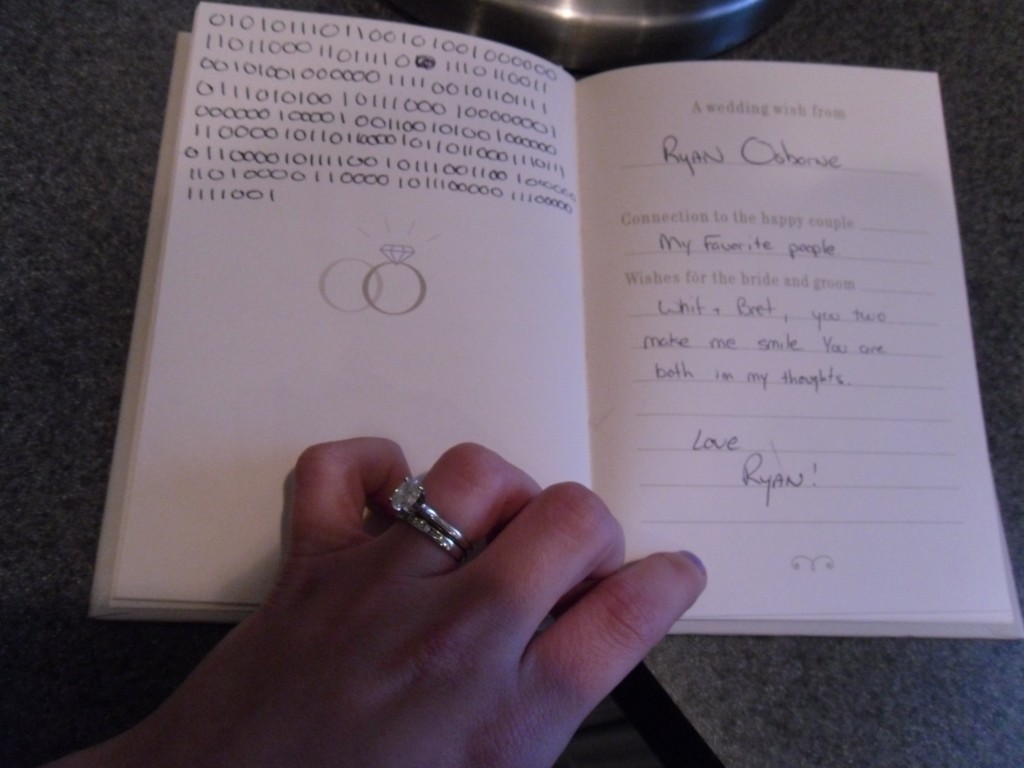 0101011101100101001000000
11011000110111101110110011
0010100100000011110010110​1111
0111010100101110001000000​01
0000001000010011001010010​00000
01100001011110010111001100​1000000
11010000110000101110000011​100000
1111001
A wedding wish from
RYAN Osborne
Connection to the happy couple
My Favorite people
Wishes for the bride and groom
Whit + Bret, you two
make me smile You are
both in my thoughts.
Love
RYAN!